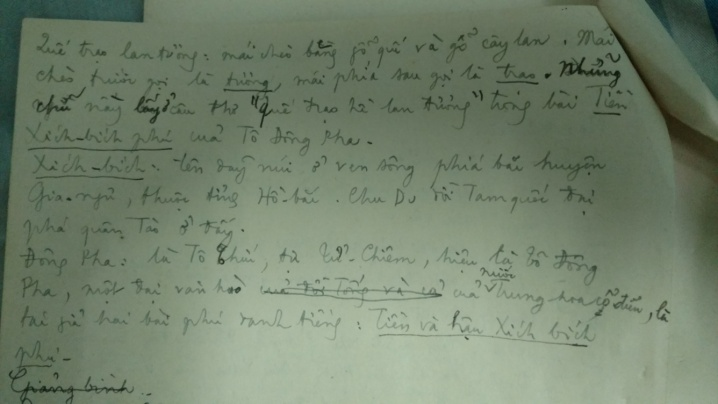 Quế trạo lan tương: mái chèo bằng gỗ quế và gỗ cây lan. Mái
chèo trước gọi là tương, mái phía sau gọi là trạo. Những
chữ này lấy ở câu thơ "quế trạo hề lan tương" trong bài Tiền
Xích-bích phú của Tô Đông Pha.
Xích-bích: tên dãy núi ở ven sông phía bắc huyện
Gia-ngư, thuộc tỉnh Hồ-bắc. Chu Du đời Tam quốc đại
phá quân Tào ở đấy.
Đông Pha: là Tô Thức, tự Tử-Chiêm, hiệu là Đông
Pha, một đại văn hào của đời Tống và của của nước Trung hoa cổ điển, là
tác giả hai bài phú danh tiếng: Tiền và hậu Xích bích
phú.
Giảng bình